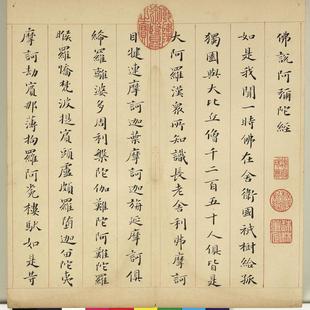 佛說阿彌陀經
如是我聞一時佛在舍衛國祇樹給孤
獨園與大比丘僧千二百五十人俱皆是
大阿羅漢衆所知識長老舍利弗摩訶
目犍連摩訶迦葉摩訶迦旃延摩訶俱
絺羅離婆多周利槃陀伽難陀阿難陀羅
睺羅憍梵波提賓頭盧頗羅墮迦留陀夷
摩訶劫賓那薄拘羅阿㝹樓馱如是等